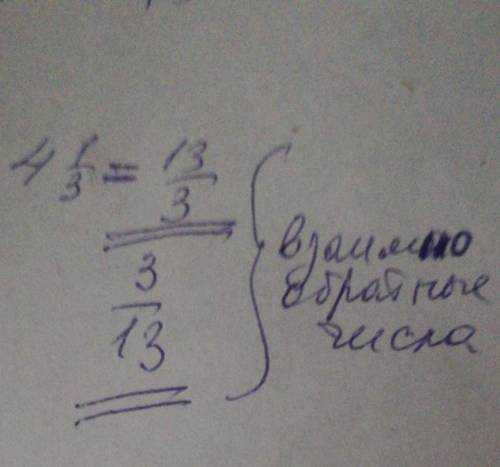 4 1/3 = 13/3
3/13
взаимно
обратные
числа